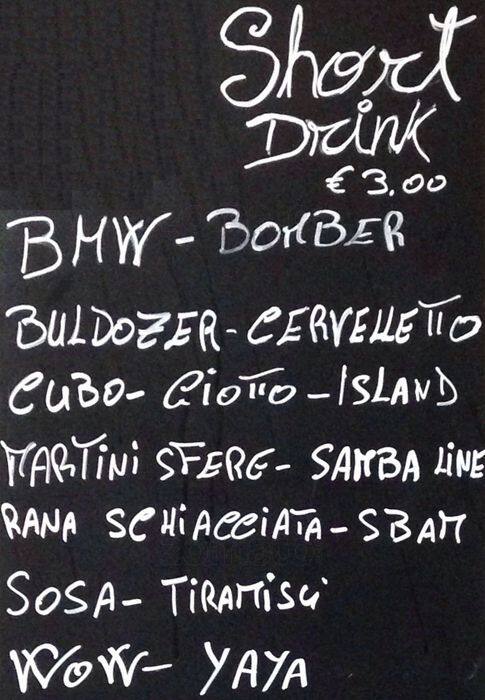 Short
DRINK
€ 3.00
BMW - BOMBER
BULDOZER - CERVELLETTO
CUBO - GIOTTO - ISLAND
MARTINI SFERE - SAMBA LINE
RANA SCHIACCIATA - SBAM
SOSA - TIRAMISÙ
WOW - YAYA